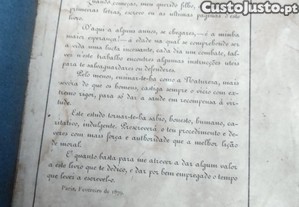 CustoJusto.pt
Quando começas, meu querido filho,
primeiras letras, cursos ou as ultimas paginas d'este
livro.
D'aqui a alguns annos, se chegares,—é a minha
maior esperança—á edade na qual se comprehende ser
a vida uma lucta incessante, cada dia um combate, tal-
vez n'este trabalho encontres algumas instrucções uteis
para te salvaguardares ou defenderes.
Pelo menos, ensinar-te-ha como a Natureza, mais
severa do que os homens, castiga sempre o vicio com ex-
tremo rigor, para só dar a saude em recompensa á vir-
tude.
Este estudo tornar-te-ha sabio, honesto, humano, ca-
ritativo, indulgente. Prescreverá o teu procedimento e de-
veres com mais força e autoridade que a melhor lição
de moral.
O quanto basta para me atrever a dar algum valor
a este livro que te dedico, e dar por bem empregado o tempo
que levei a escrevel-o.
Paris, Fevereiro de